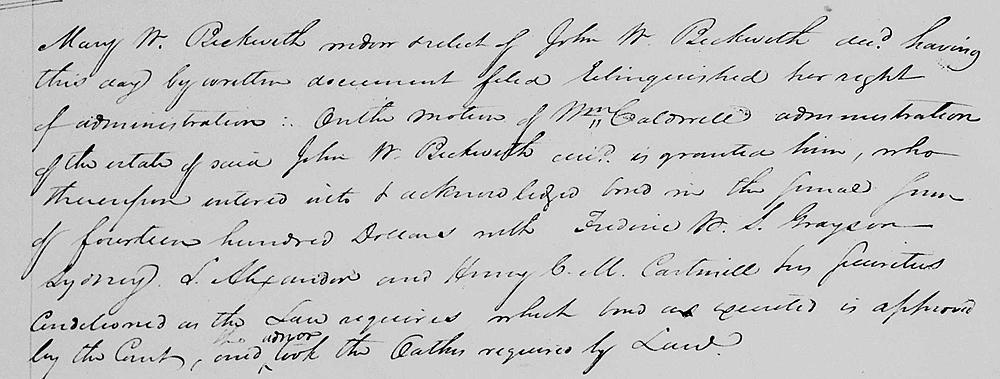 Mary W. Beckwith widow & relect of John W. Beckwith decd. having
this day by written document filed relinquished her right
of administration :. On the motion of Wm Caldwell administration
of the estate of said John W. Beckwith decd. is granted him, who
thereupon entered into & acknowledged bond in the penal sum
of fourteen hundred Dollars with Frederic W. S. Grayson
Sydney S. Alexander and Henry C. M. Cartmill his securities
Conditioned as the Law requires which bond as executed is approved
by the Court, and the admor took the Oaths required by Law.